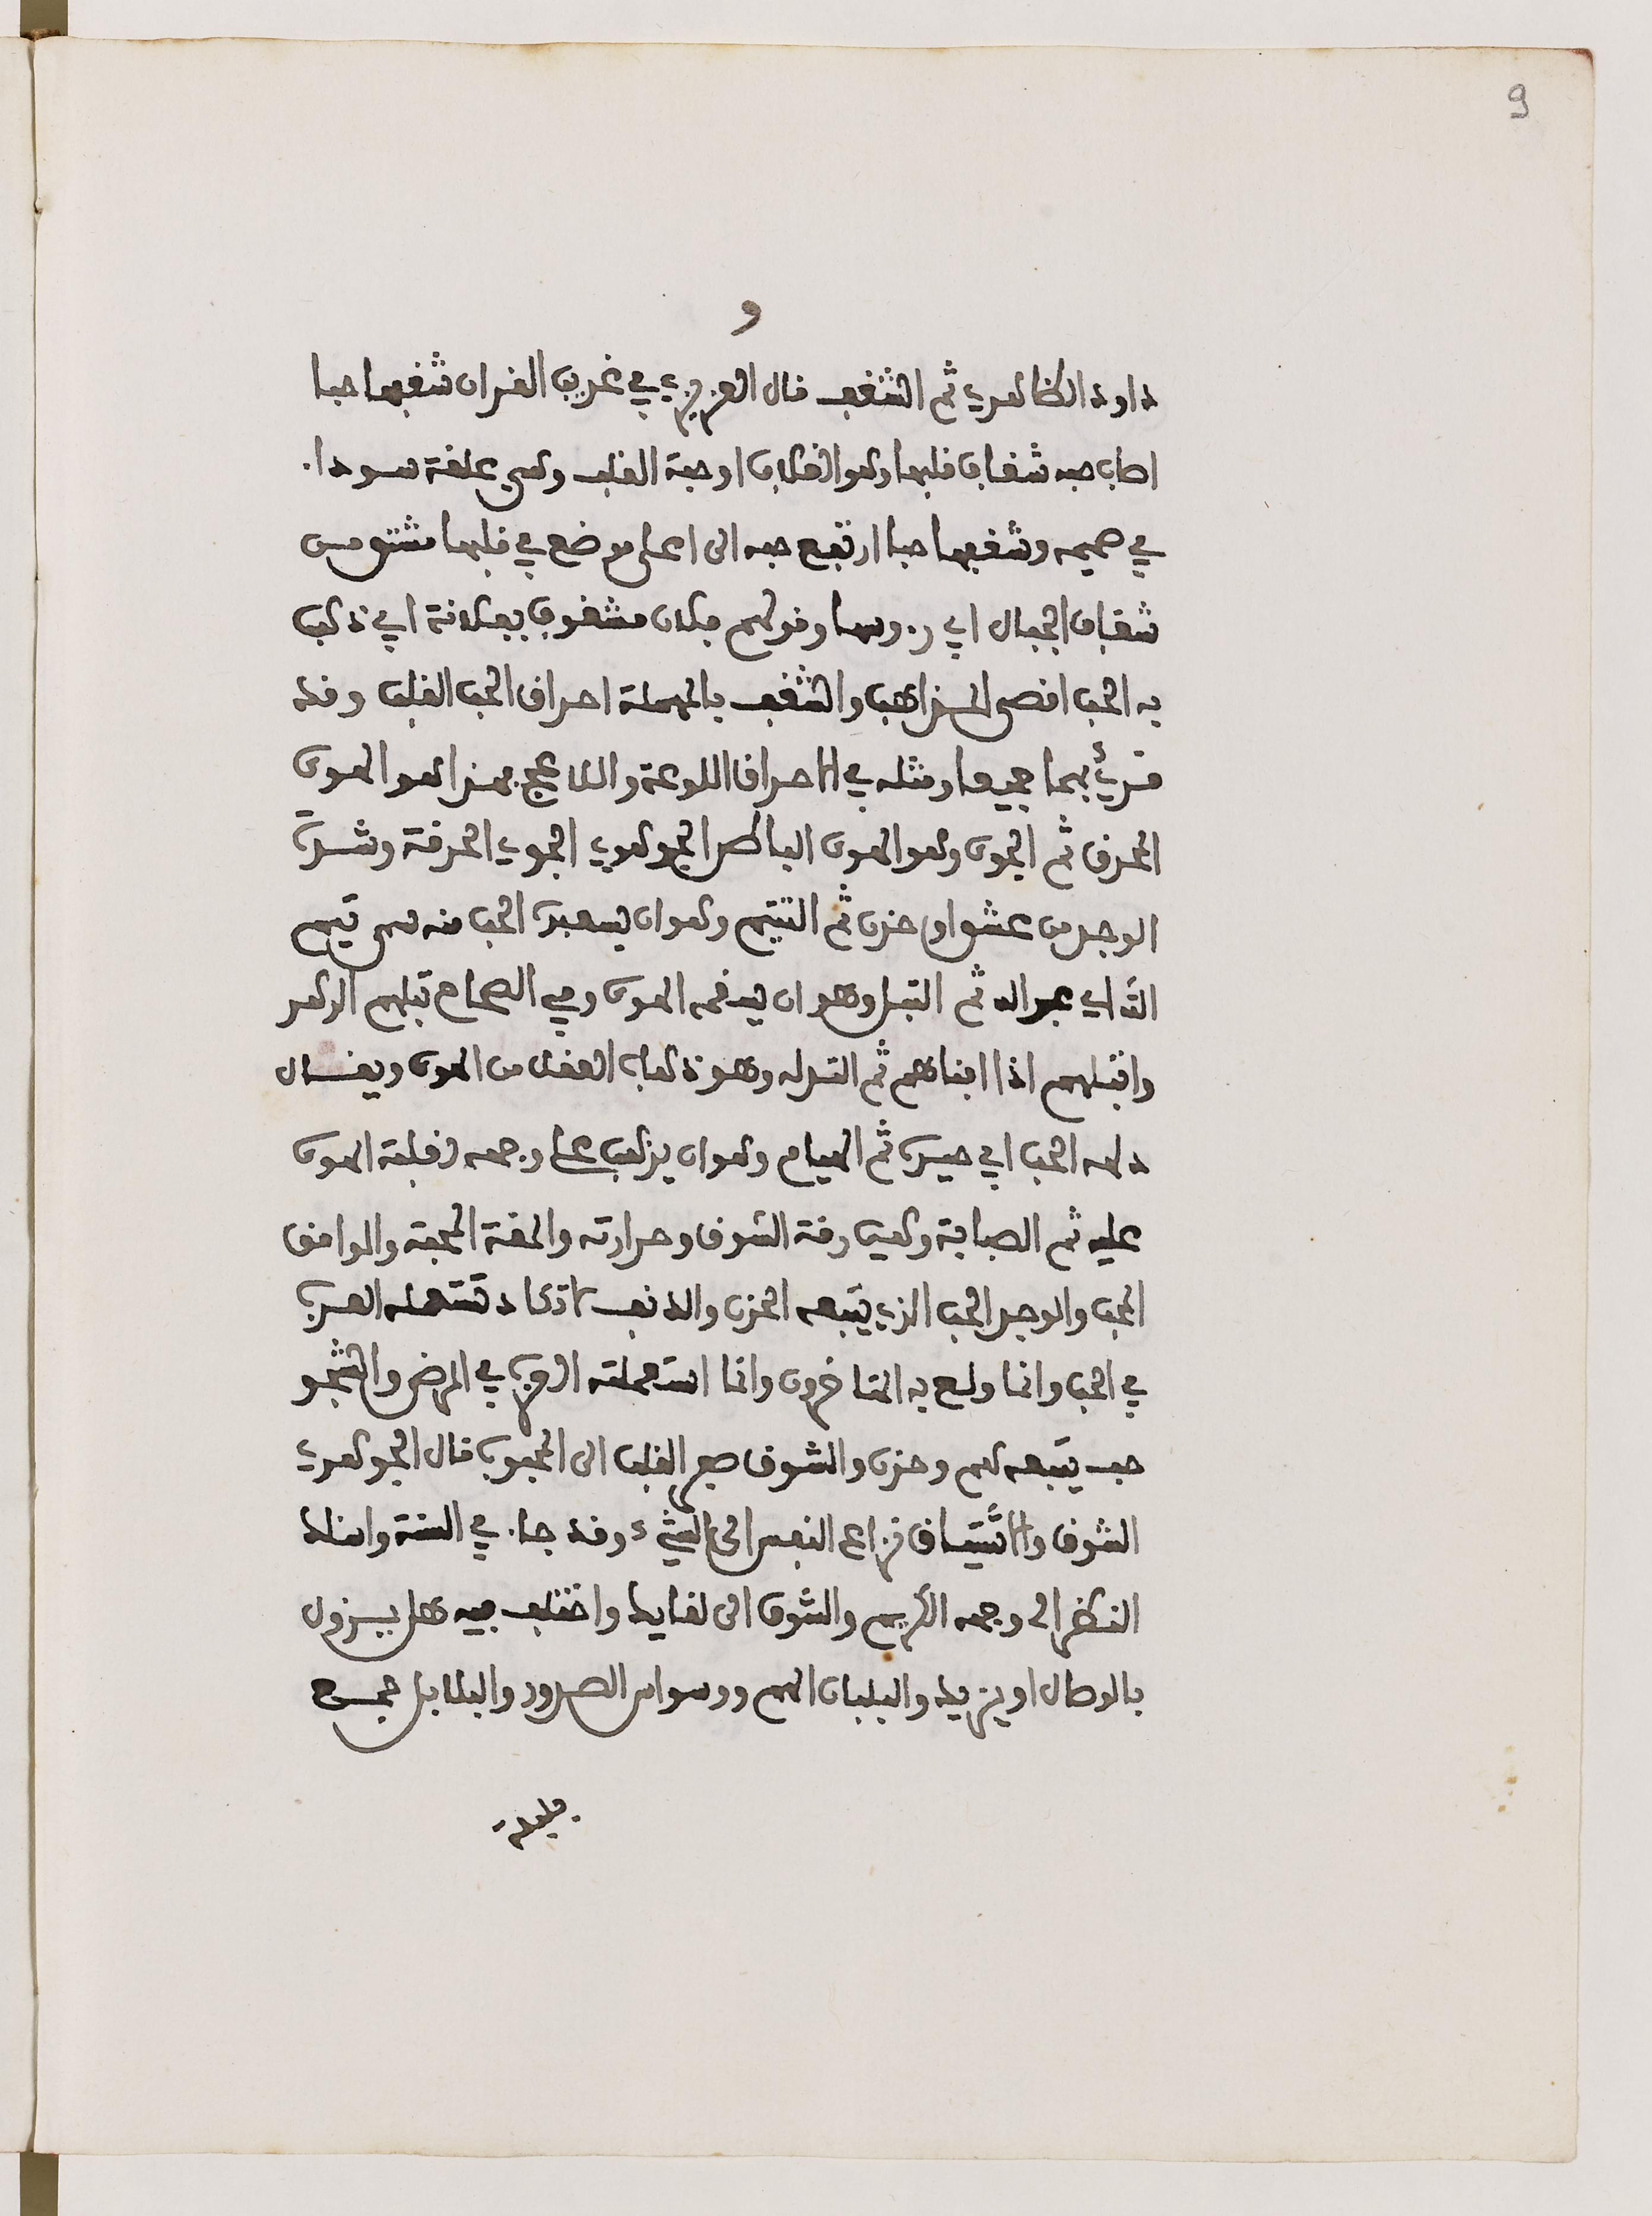 9
و
داود الظاهري ثم الشغف قال العزيزي في غريب القران شغفها حبا
اصاب حبه شغاف قلبها وهو الغلاف او حبة القلب وهي علقة سوداء
في صميمه وشغفها حبا ارتفع حبه الى اعلى موضع في قلبها مشتق من
شعاف الجبال اي رءوسها وقولهم فلان مشغوف بفلانة اي ذهب
به الحب اقصى المذاهب والشغف بالمهملة احراق الحب القلب وقد
قرئ بهما جميعا ومثله في الاحراق اللوعة واللاعج فهذا هو الهوى
المحرق ثم الجوى وهو الهوى الباطن الجوهري الجوى الحرقة وشدة
الوجد من عشق او حزن ثم التتيم وهو ان يستعبده الحب منه سمي تيم
الله اي عبد الله ثم التبل وهو ان يسقمه الهوى وفي الصحاح تبلهم الدهر
واتبلهم اذا افناهم ثم التدله وهو ذهاب العقل من الهوى ويقال
دلهه الحب اي حيره ثم الهيام وهو ان يذهب على وجهه لغلبة الهوى
عليه ثم الصبابة وهي رقة الشوق وحرارته والمقة المحبة والوامق
المحب والوجد الحب الذي يتبعه الحزن والدنف لا تكاد تستعمله العرب
في الحب وانما ولع به المتاخرون وانما استعملته العرب في المرض والشجو
حب يتبعه هم وحزن والشوق سفر القلب الى المحبوب قال الجوهري
الشوق والاشتياق نزاع النفس الى الشيء وقد جاء في السنة واسئلك
النظر الى وجهه الكريم والشوق الى لقايك واختلف فيه هل يزول
بالوصال او يزيد والبلبال الهم ووسواس الصدور والبلابل جمع